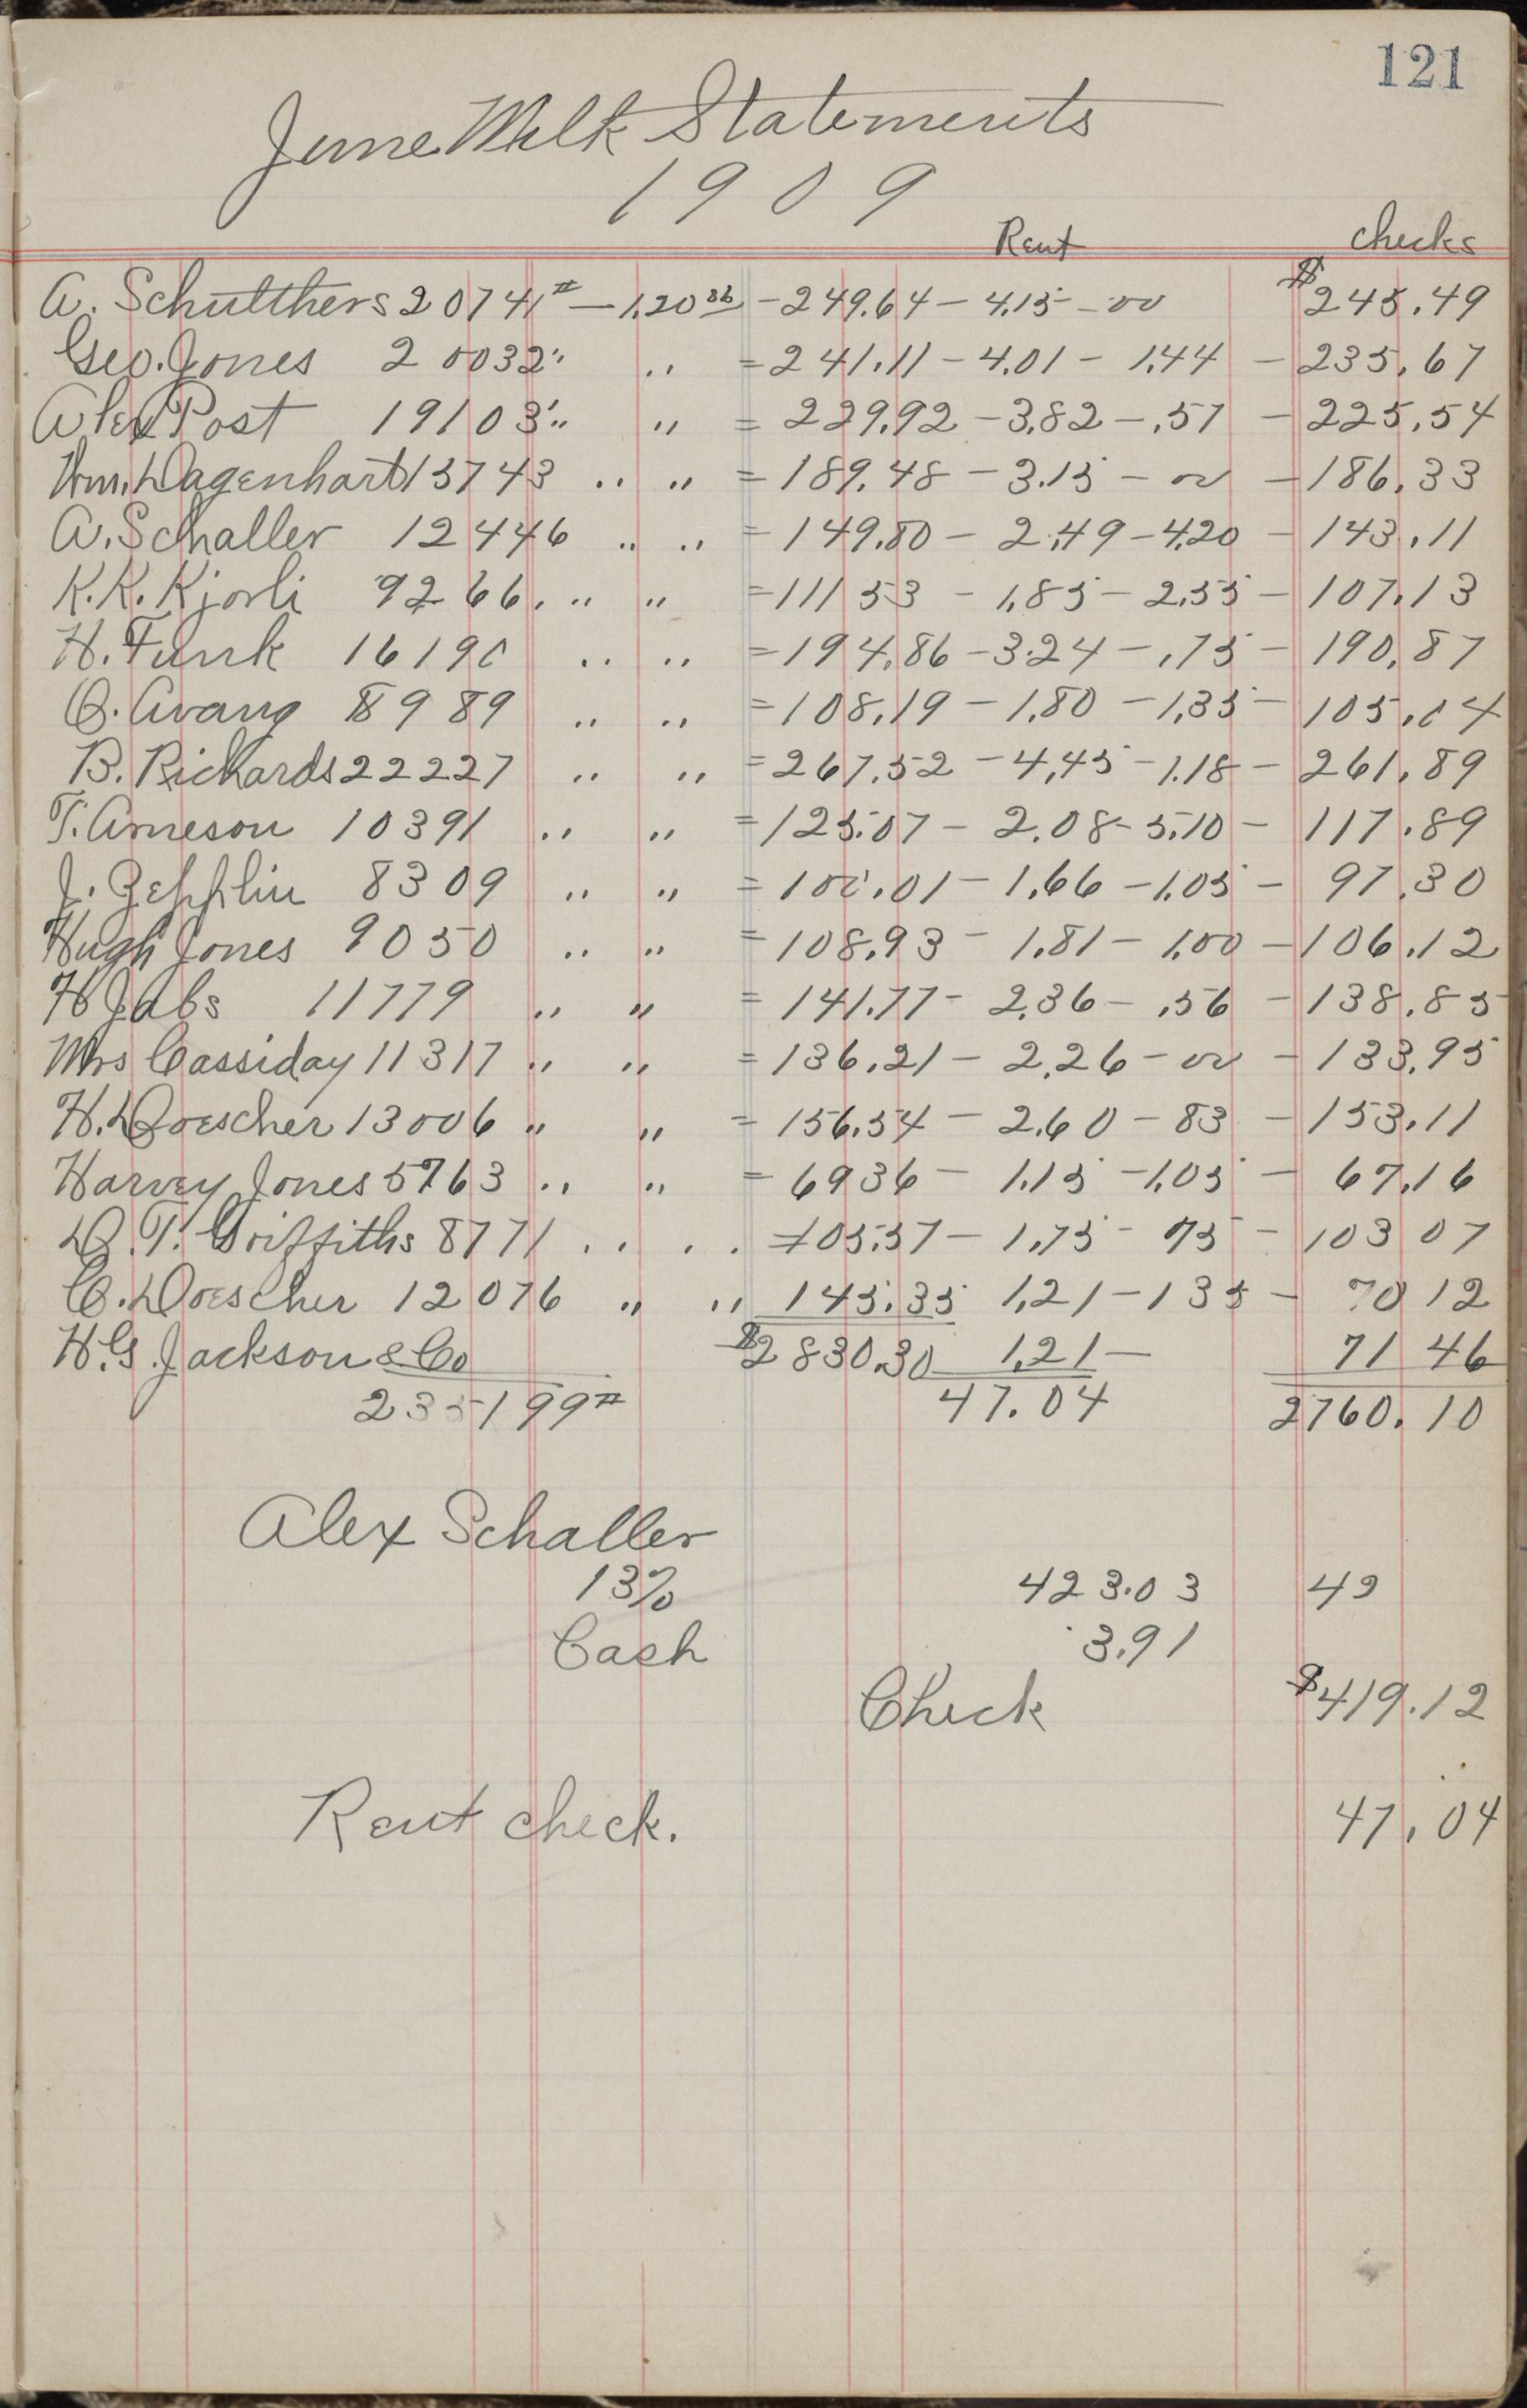 121
June Milk Statements
1909
Rent checks
A. Schutthers 20741# — 1.20 36 - 249.64 - 4.15 - 00 $245.49
Geo. Jones 20032 " " = 241.11 - 4.01 - 1.44 - 235.67
Alex Post 19103 " " = 229.92 - 3.82 - .57 - 225.54
Wm. Dagenhart 15743 " " = 189.48 - 3.15 - 00 - 186.33
A. Schaller 12446 " " = 149.80 - 2.49 - 4.20 - 143.11
K. K. Kjorli 9266. " " = 111 53 - 1.85 - 2.55 - 107.13
H. Funk 16190 " " = 194.86 - 3.24 - .75 - 190.87
O. Avang 8989 " " = 108.19 - 1.80 - 1.35 - 105.04
B. Richards 22227 " " = 267.52 - 4.45 - 1.18 - 261.89
T. Arneson 10391 " " = 125.07 - 2.08 - 5.10 - 117.89
J. Zepplin 8309 " " = 100.01 - 1.66 - 1.05 - 97.30
Hugh Jones 9050 " " = 108.93 - 1.81 - 1.00 - 106.12
H Jabs 11779 " " = 141.77 - 2.36 - .56 - 138.85
Mrs Cassiday 11317 " " = 136.21 - 2.26 - 00 - 133.95
H. Doescher 13006 " " = 156.54 - 2.60 - 83 - 153.11
Harvey Jones 5763 " " = 69 36 - 1.15 - 1.05 - 67.16
D. T. Griffiths 8771 " " = 105.57 - 1.75 - 75 - 103 07
C. Doescher 12076 " " 145.35 1.21 - 1 35 - 70 12
H. G. Jackson & Co $2830.30 1.21 - 71 46
235199# 47.04 2760.10
Alex Schaller
13% 423.03 49
Cash 3.91
Check $419.12
Rent check. 47.04